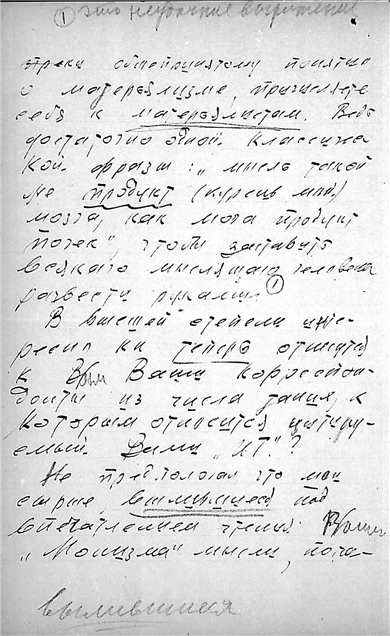 ① это неудачное выражение
преки общепринятому понятию
о матерьялизме, причисляете
себя к матерьялистам. Ведь
достаточно одной классичес
кой фразы: „мысль такой
же продукт (курсив мой)
мозга, как моча продукт
почек", чтобы заставить
всякаго мыслящаго человека
развести руками ①
В высшей степени инте-
ресно как теперь относятся
к Вам Ваши корреспон-
денты из числа
которым относится цитиру-
емый Вами „ХГ".?
Не предполагал что мои
сырые, вылившиеся под
впечатлением чтения
„Монизма" мысли, поча-
вылившиеся